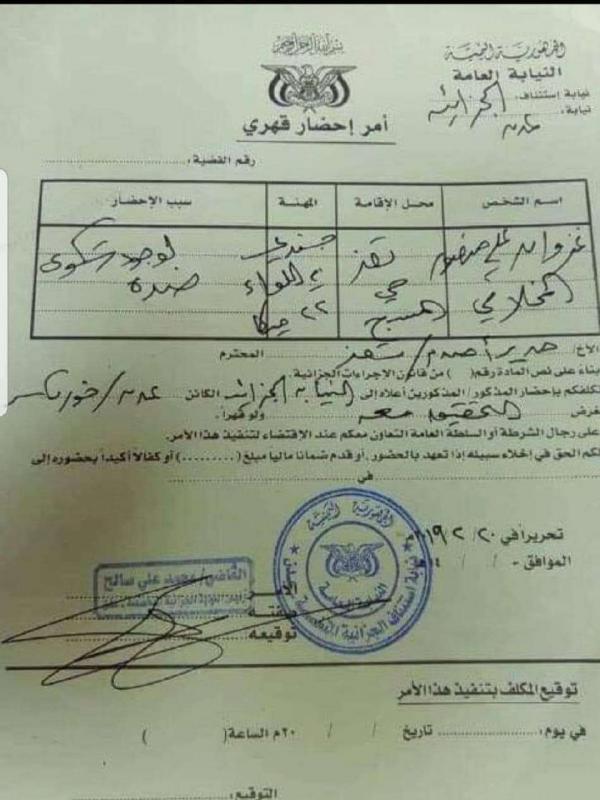 بسم الله الرحمن الرحيم
الجمهورية اليمنية
النيابة العامة
نيابة إستئناف: الجزائية
نيابة: عدن
أمر إحضار قهري
رقم القضية:
اسم الشخص محل الإقامة المهنة سبب الإحضار
غزوان علي منصور المخلافي تعز حي المسبح جندي في اللواء ٢٢ ميكا لوجود شكوى ضده
الأخ/ مدير أمن م/ تعز المحترم
بناء على نص المادة رقم ( ) من قانون الإجراءات الجزائية.
نكلفكم بإحضار المذكور/ المذكورين أعلاه إلى النيابة الجزائية الكائن عدن/خورمكسر
لغرض التحقيق معه ولو قهراً.
على رجال الشرطة أو السلطة العامة التعاون معكم عند الاقتضاء لتنفيذ هذا الأمر.
لكم الحق في إخلاء سبيله إذا تعهد بالحضور. أو قدم ضمانا ماليا مبلغ (........) أو كفالا أكيداً بحضوره إلى
في
تحريراً في ٢٠/ ٢/ ٢٠١٩م
الموافق - / / ١٤هـ
القاضي/ محمد علي صالح
صفته
توقيعه
الجمهورية اليمنية
النيابة العامة
نيابة استئناف الجزائية المتخصصة
توقيع المكلف بتنفيذ هذا الأمر
في يوم: تاريخ / / ٢٠م الساعة ( )
التوقيع: